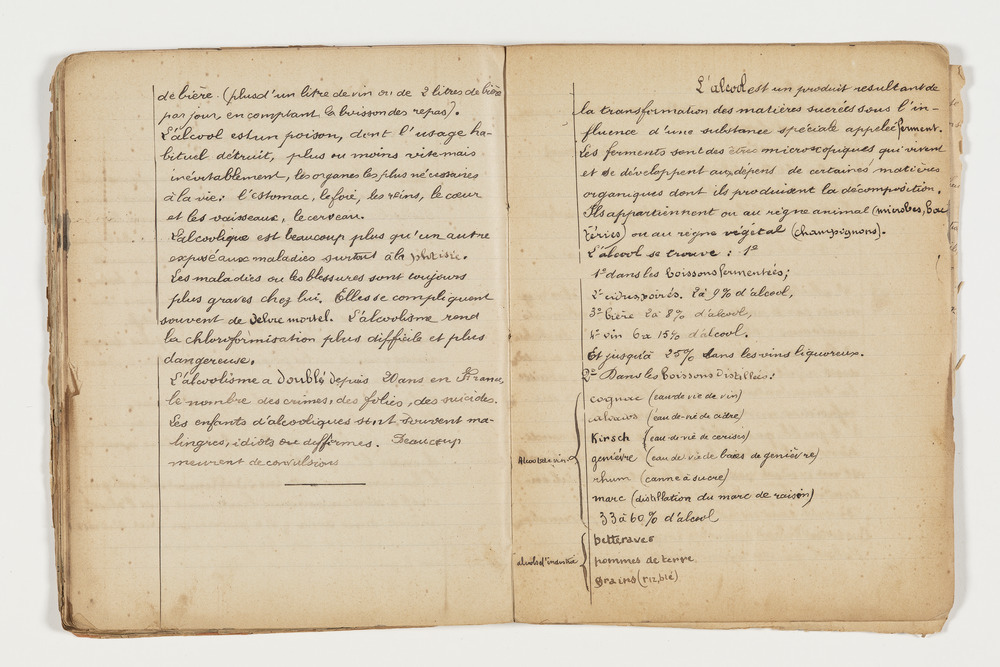 de bière. (plus d'un litre de vin ou de 2 litres de bière
par jour, en comptant la boisson des repas).
L'alcool est un poison, dont l'usage ha-
bituel détruit, plus ou moins vite mais
inévitablement, les organes les plus nécessaires
à la vie: l'estomac, le foie, les reins, le cœur
et les vaisseaux, le cerveau.
L'alcoolique est beaucoup plus qu'un autre
exposé aux maladies surtout à la phtisie.
Les maladies ou les blessures sont toujours
plus graves chez lui. Elles se compliquent
souvent de delire mortel. L'alcoolisme rend
la chloroformisation plus difficile et plus
dangereuse.
L'alcoolisme a doublé depuis 20 ans en France,
le nombre des crimes, des folies, des suicides.
Les enfants d'alcooliques sont souvent ma-
lingres, idiots ou difformes. Beaucoup
meurent de convulsions
L'alcool est un produit resultant de
la transformation des matières sucrées sous l'in-
fluence d'une substance spéciale appelée ferment.
Les ferments sont des êtres microscopiques qui vivent
et se développent aux dépens de certaines matières
organiques dont ils produisent la décomposition.
Ils appartiennent ou au règne animal (microbes, bac
téries) ou au règne végétal (champignons).
L'alcool se trouve : 1º
1º dans les boissons fermentées;
2º cidres, poirés. 2 à 9% d'alcool,
3º bière 2 à 8% d'alcool,
4º vin 6 à 15% d'alcool.
Et jusqu'à 25% dans les vins liquoreux.
2º Dans les boissons distillées:
cognac (eau de vie de vin)
calvados (eau-de-vie de cidre)
Kirsch (eau de vie de cerises)
Alcools de vin genièvre (eau de vie de baies de genièvre)
rhum (canne à sucre)
marc (distillation du marc de raisin)
33 à 60% d'alcool
betteraves
alcools d'industrie pommes de terre
grains (riz, blé)